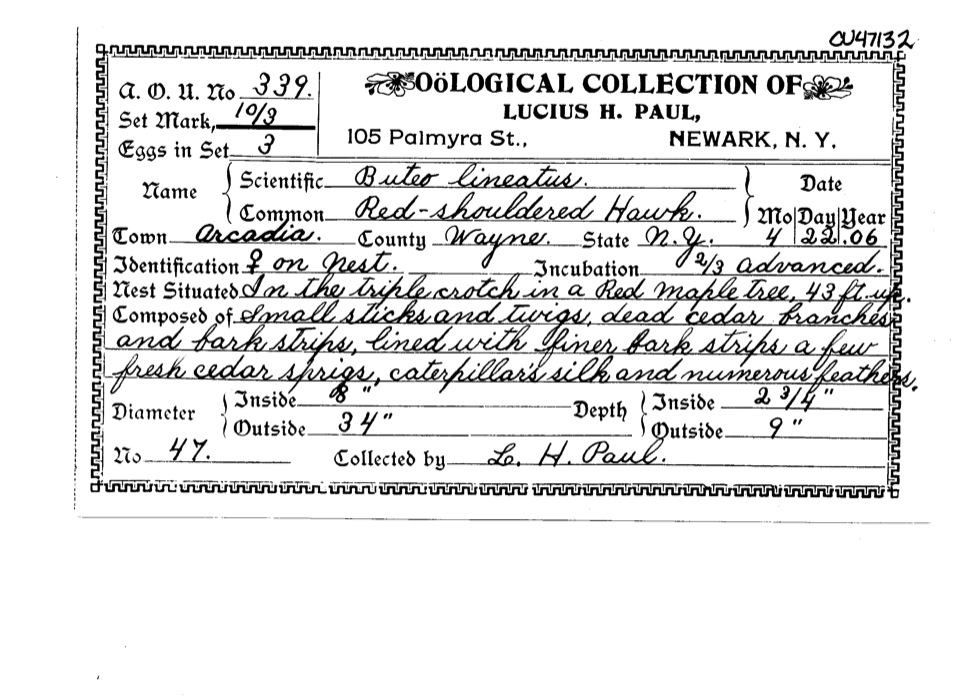 CU47132
A. O. U. No 339.
OöLOGICAL COLLECTION OF
Set Mark, 10/3
LUCIUS H. PAUL,
Eggs in Set 3
105 Palmyra St., NEWARK, N. Y.
Name
Scientific Buteo lineatus.
Date
Common Red-shouldered Hawk.
Mo Day Year
Town Arcadia. County Wayne. State N.Y. 4 22. 06
Identification ♀ on nest. Incubation 2/3 advanced.
Nest Situated In the triple crotch in a Red maple tree, 43 ft. up.
Composed of Small sticks and twigs, dead cedar branches
and bark strips, lined with finer bark strips a few
fresh cedar sprigs, caterpillar's silk and numerous feathers.
Diameter
Inside 8"
Outside 34"
Depth
Inside 2 3/4"
Outside 9"
No 47. Collected by L. H. Paul.